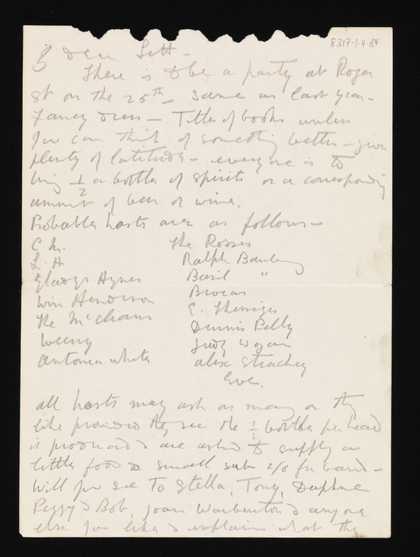 8317.1.4.58
Dear Sett -
There is to be a party at Roger
St on the 25th - same as last year -
Fancy Dress - Title of books unless
you can think of something better - give
plenty of latitude - everyone is to
bring 1/2 a bottle of spirits or a corresponding
amount of beer or wine.
Probable hosts are as follows -
The Rosses
Ralph Banbury
Gladys Hynes
Basil "
Wm Henderson
Brocas
The McCleans
Dennis
Judy Wogan
Antonia White
Alix Strachey
Eve.
all hosts may ask as many as they
like provided they see the 1/2 bottle per head
is produced & are asked to supply a
little food & small sub
Will you see to Stella, Tony, Daphne
Peggy & Bob, Joan Warburton & anyone
else you like & explain what the